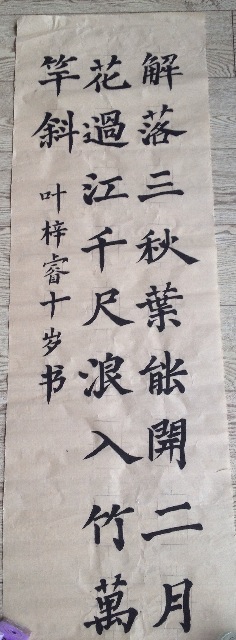 解落三秋葉能開二月
花過江千尺浪入竹萬
竿斜
叶梓睿十岁书